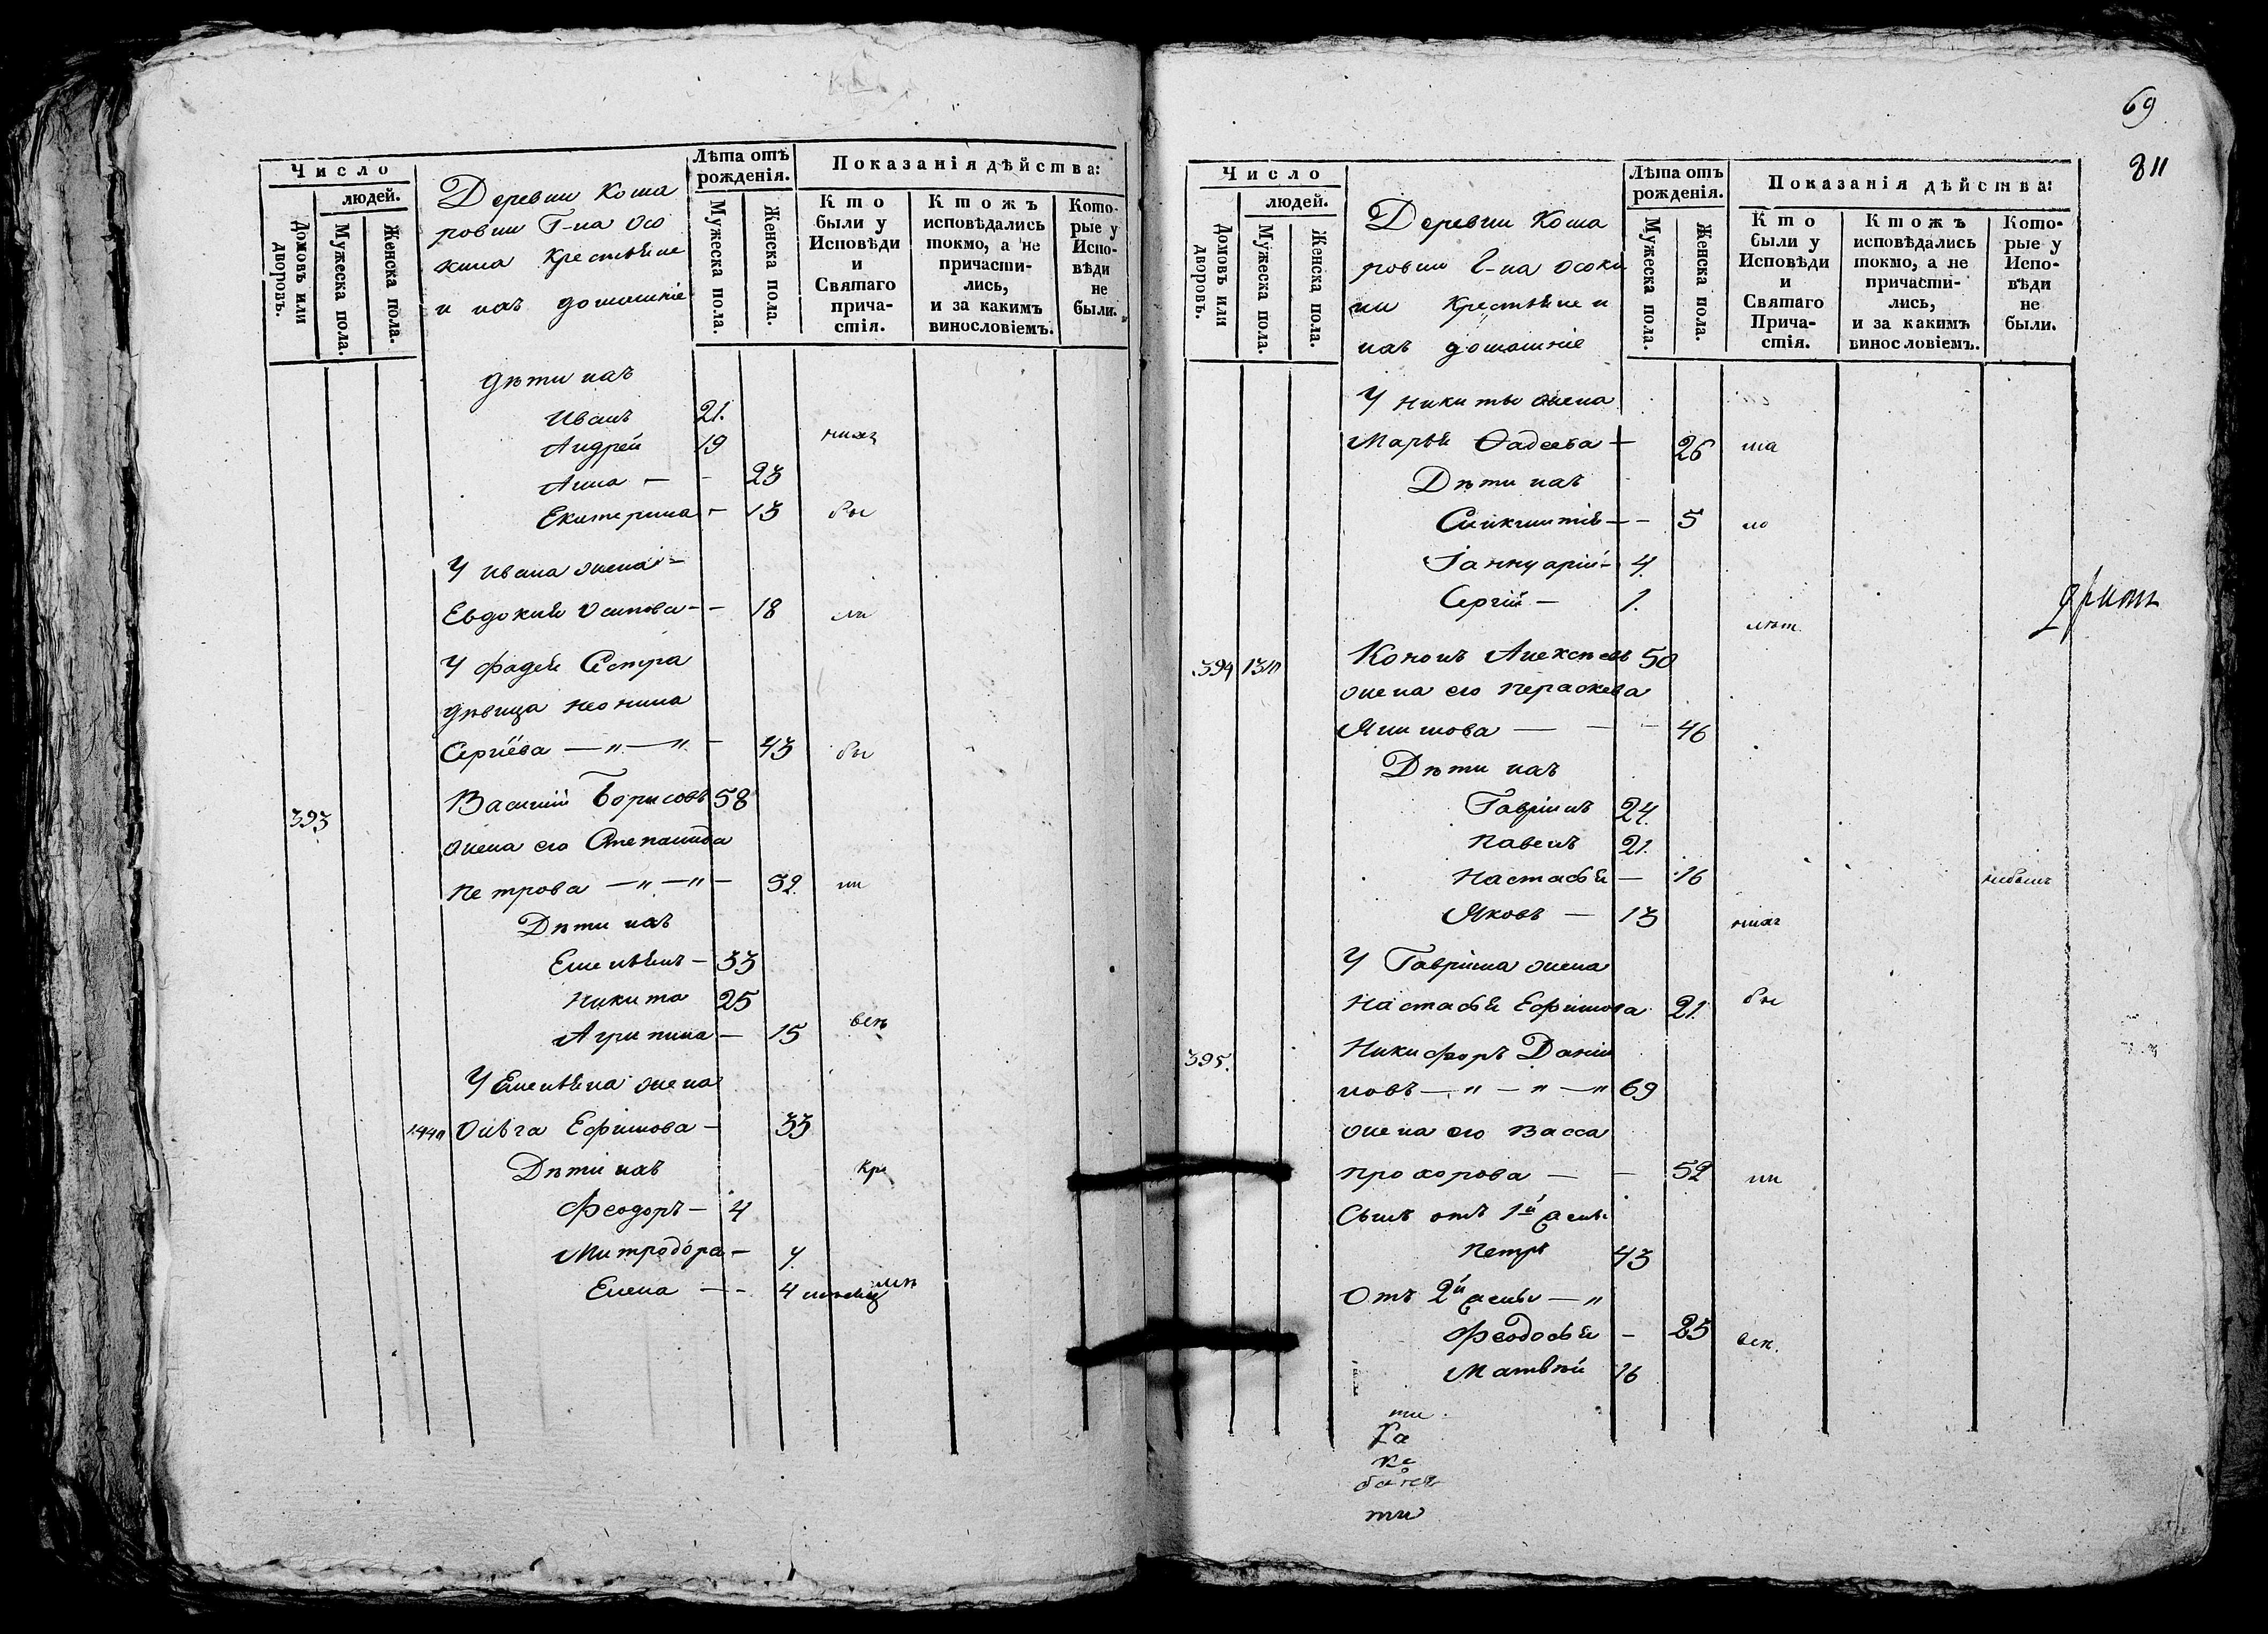 Число
людей.
Домовъ или дворовъ.
Мужеска пола.
Женска пола.
Деревни Кома
ровки Г-на Осо
кина крестьяне
и ихъ домашніе
Лѣта отъ рожденія.
Мужеска пола.
Женска пола.
Показанія дѣйства:
Кто были у Исповѣди и Святаго причастія.
Ктожъ исповѣдались токмо, а не причастились, и за какимъ винословіемъ.
Которые у Исповѣди не были.
дѣти ихъ
Иванъ 21.
Андрей 19
Анна — - 23
Екатерина - 13 бы
У Ивана жена
Евдокия Осипова - - 18 ли
У Фадея сестра
дѣвица Неонила
Сергіева — " — " - 43 бы
393 Василий Борисовъ 58
жена его Степанида
Петрова — " — " - 52 ли
Дѣти ихъ
Емельянъ - 33
Никита 25
Агрипина - 15 всѣ
У Емельяна жена
Ольга Ефимова - 33
Дѣти ихъ Кро
Феодоръ - 4
Митродора - 4
Елена - - 4 мѣсяц мѣ
69
311
Число
людей.
Домовъ или дворовъ.
Мужеска пола.
Женска пола.
Деревни Кома
ровки Г-на Осоки
на крестьяне и
ихъ домашніе
Лѣта отъ рожденія.
Мужеска пола.
Женска пола.
Показанія дѣйства:
Кто были у Исповѣди и Святаго Причастія.
Ктожъ исповѣдались токмо, а не причастились, и за какимъ винословіемъ.
Которые у Исповѣди не были.
У Никиты жена
Марья Фадеева - 26
Дѣти ихъ
Синклитія - - 5
Іаннуарій - 4.
Сергій - 1.
лѣт.
394 Кононъ Алексѣевъ 50
жена его Параскева
— — 46
Дѣти ихъ
Гавріилъ 24
Павелъ 21.
Настасья — 16 небылъ
Яковъ — 13
У Гавріила жена
Настасья Ефимова 21. бы
395. Никифоръ Дани
ловъ — " — " — " 69
жена его Васса
Прохорова — — 52 ли
Сынъ отъ 1й жены
Петръ 43
Отъ 2й жены — "
Феодосья - 25 всѣ.
Матвѣй 16
ти